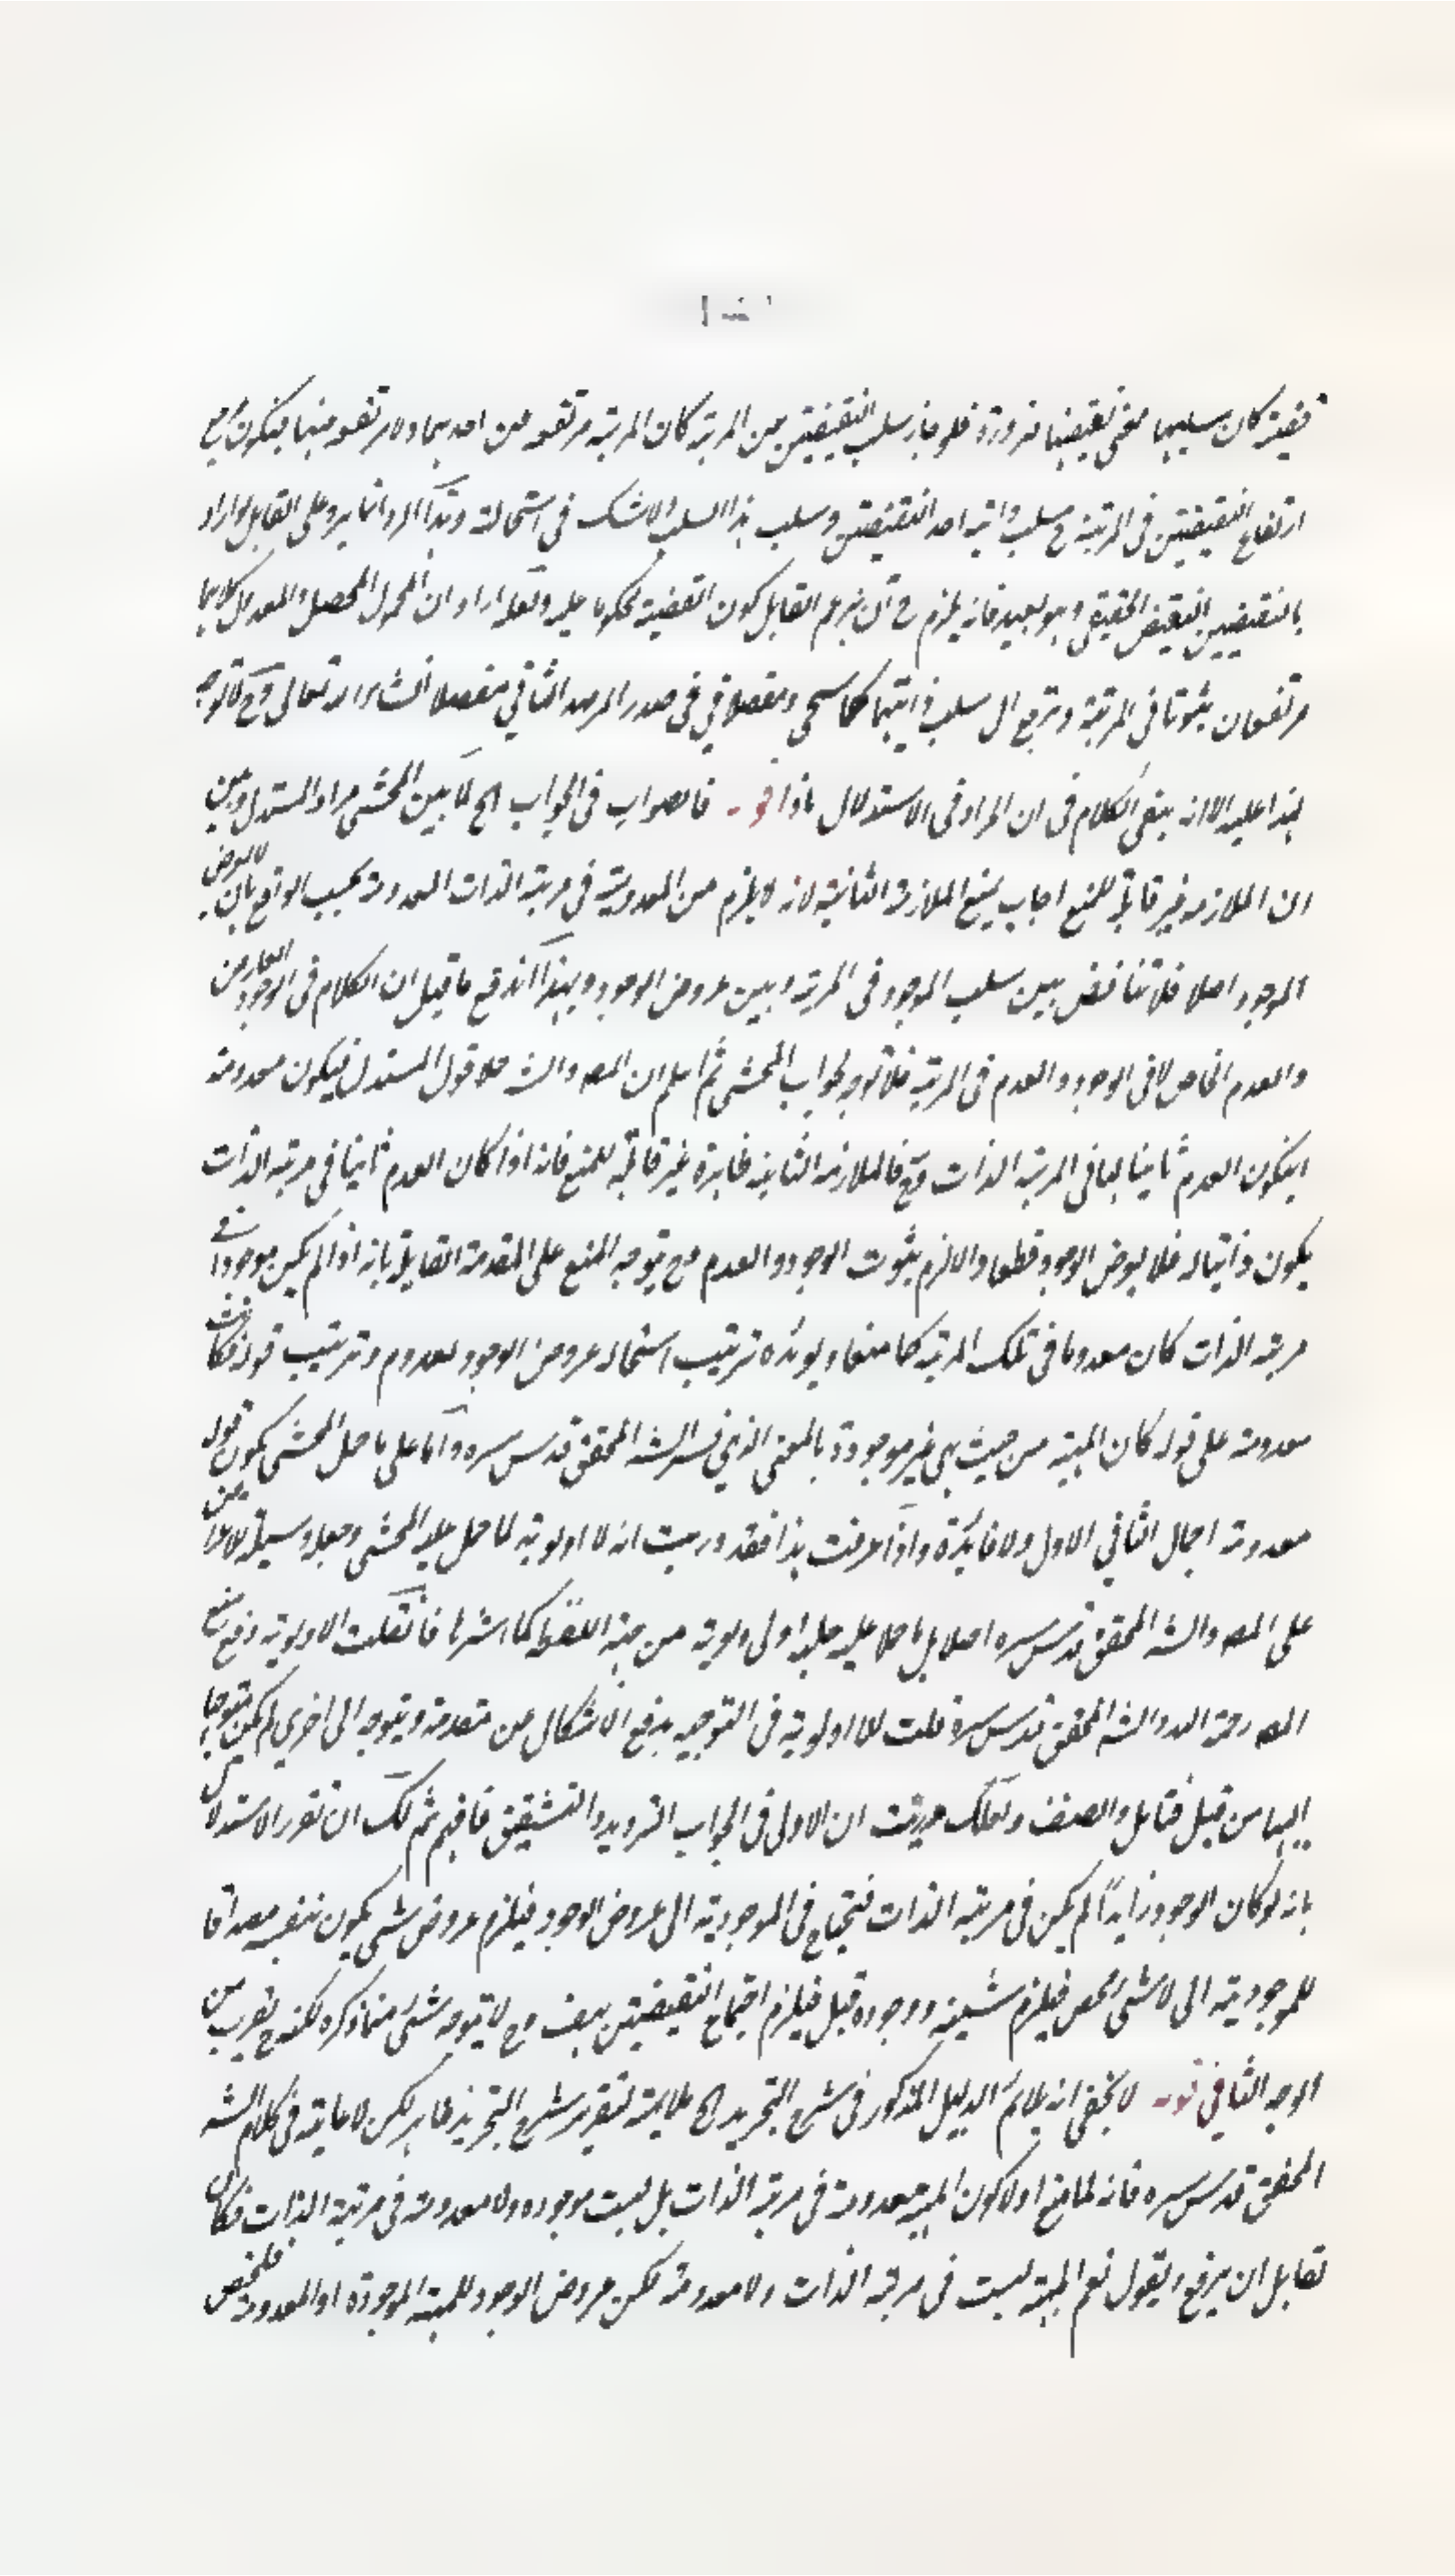 قضية كان سلبهما معنى نقيضها ضرورة فلو جاز سلب النقيضين عن المرتبة كان المرتبة مرتفعة عن احدهما ولا مرتفعة عنها فيكون
ارتفاع النقيضين فى المرتبة ح سلب ذاتية احد النقيضين وسلب هذا السلب لا شك فى استحالته وهذا المراد انما يرد على القايل لو اراد
بالنقيضين النقيض الحقيقى وهو بعيد فانه يلزم ح ان يزعم القايل كون القضية محكوما عليه ولعله اراد ان المحمول المحصل والمعدول كلاهما
مرتفعان ثبوتا فى المرتبة ويرجع الى سلب ذاتيتهما كما سيجى مفصلا فى صدر المرصد الثانى مفصلا انشاء الله تعالى وح لا توجه
لهذا عليه الا انه يبقى الكلام فى ان المراد فى الاستدلال ماذا قوله فالصواب فى الجواب الخ لما بين المحشى مراد المستدل وبين
ان الملازمة غير قابلة للمنع اجاب بمنع الملازمة الثانية لانه لا يلزم من المعدومية فى مرتبة الذات المعدومية بحسب الواقع بان لا يعرض
الوجود اصلا فلا تناقض بين سلب الوجود فى المرتبة وبين عروض الوجود وبهذا اندفع ما قيل ان الكلام فى الوجود العارض
والعدم الخاص لا فى الوجود والعدم فى المرتبة فلا توجه لجواب المحشى ثم اعلم ان المصـ والشـ حملا قول المستدل فيكون معدومة
ليكون العدم ثابتا لها فى المرتبة الذات وح فالملازمة الثانية ظاهرة غير قابلة للمنع فانه اذا كان العدم ثابتا فى مرتبة الذات
يكون ذاتيا له فلا يعرض الوجود قطعا والا لزم ثبوت الوجود والعدم وح يتوجه المنع على المقدمة القايلة بانه اذا لم يكن موجودا فى
مرتبة الذات كان معدوما فى تلك المرتبة كما منعا ويؤيده ترتيب استحالة عروض الوجود لمعدوم وترتيب قوله فكانت
معدومة على قوله كان المهية من حيث هى غير موجودة بالمعنى الذى فسر الشـ المحقق قدس سره واما على ما حمل المحشى يكون قوله
معدومة اجمال الثانى الاول ولا فايدة واذا عرفت هذا فقد دريت انه لا اولوية لما حمل عليه المحشى وجعله وسيلة للاعتراض
على المصـ والشـ المحقق قدس سره اصلا بل ما حملا عليه اولى من جهة اللفظ كما اشرنا فان قلت الاولوية دفع منع
المصـ رحمة الله والشـ المحقق قدس سره قلت لا اولوية فى التوجيه بدفع الاشكال عن مقدمة ويتوجه الى اخرى لم يكن متوجها
اليها من قبل فتأمل وانصف ولعلك دريت ان الاولى فى الجواب الترديد والتشقيق فافهم ثم لك ان تقرر الاستدلال
بانه لو كان الوجود زايدا لم يكن فى مرتبة الذات فيحتاج فى الموجودية الى عروض الوجود فيلزم عروض شى يكون بنفسه مصداقا
للموجودية الى لا شئ محض فيلزم شيئيته ووجوده قبل فيلزم اجتماع النقيضين هف وح لا يتوجه شئ مما ذكره لكنه ح يقرب من
الوجه الثانى قوله لا يخفى انه يلائم الدليل المذكور فى شرح التجريد الخ ملايمة لتقرير شرح التجريد ظاهر لكن لا ملايمة فى كلام الشـ
المحقق قدس سره فانه لما منع اولا كون المهية معدومة فى مرتبة الذات بل ليست موجودة ولا معدومة فى مرتبة الذات فكان
لقايل ان يرفع ويقول نعم المهية ليست فى مرتبة الذات ولا معدومة لكن عروض الوجود للمهية الموجودة او المعدومة